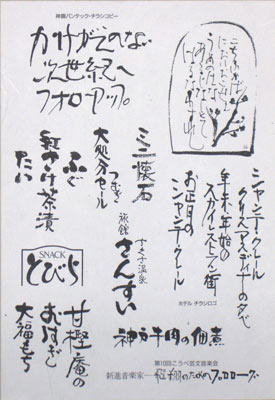 神鋼パンテック・チラシコピー
かけがえのない
次世紀へ
フォローアップ。
こちふかば
にほひおこせよ
うめのはな
あるじなしとて
はるなわすれそ
シャンテ・クレール
クリスマスディナーの夕べ
年末、年始の
スカイレストラン街
お正月の
シャンテ・クレール
ホテル チラシロゴ
ミニ懐石
大処分セール
つむぎ
ふぐ
紅さけ茶漬
たい
旅館
さんすい
SNACK
とびら
神戸牛肉の佃煮
甘樫庵の
おはぎと
大福もち
第10回こうべ芸文音楽会
新進音楽家
飛翔のための